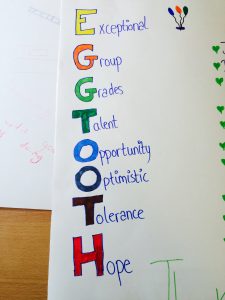 Exceptional
Group
Grades
Talent
Opportunity
Optimistic
Tolerance
Hope